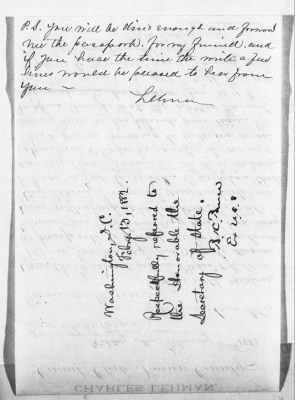 P.S. You will be kind enough and forward
me the passport for my friend and
if you have the time to write a few
lines would be pleased to hear from
you ~
Lehman
Washington, D.C.
Feby 13, 1882.
Respectfully referred to
the Honorable the
Secretary of State.
CHARLES LEHMAN.